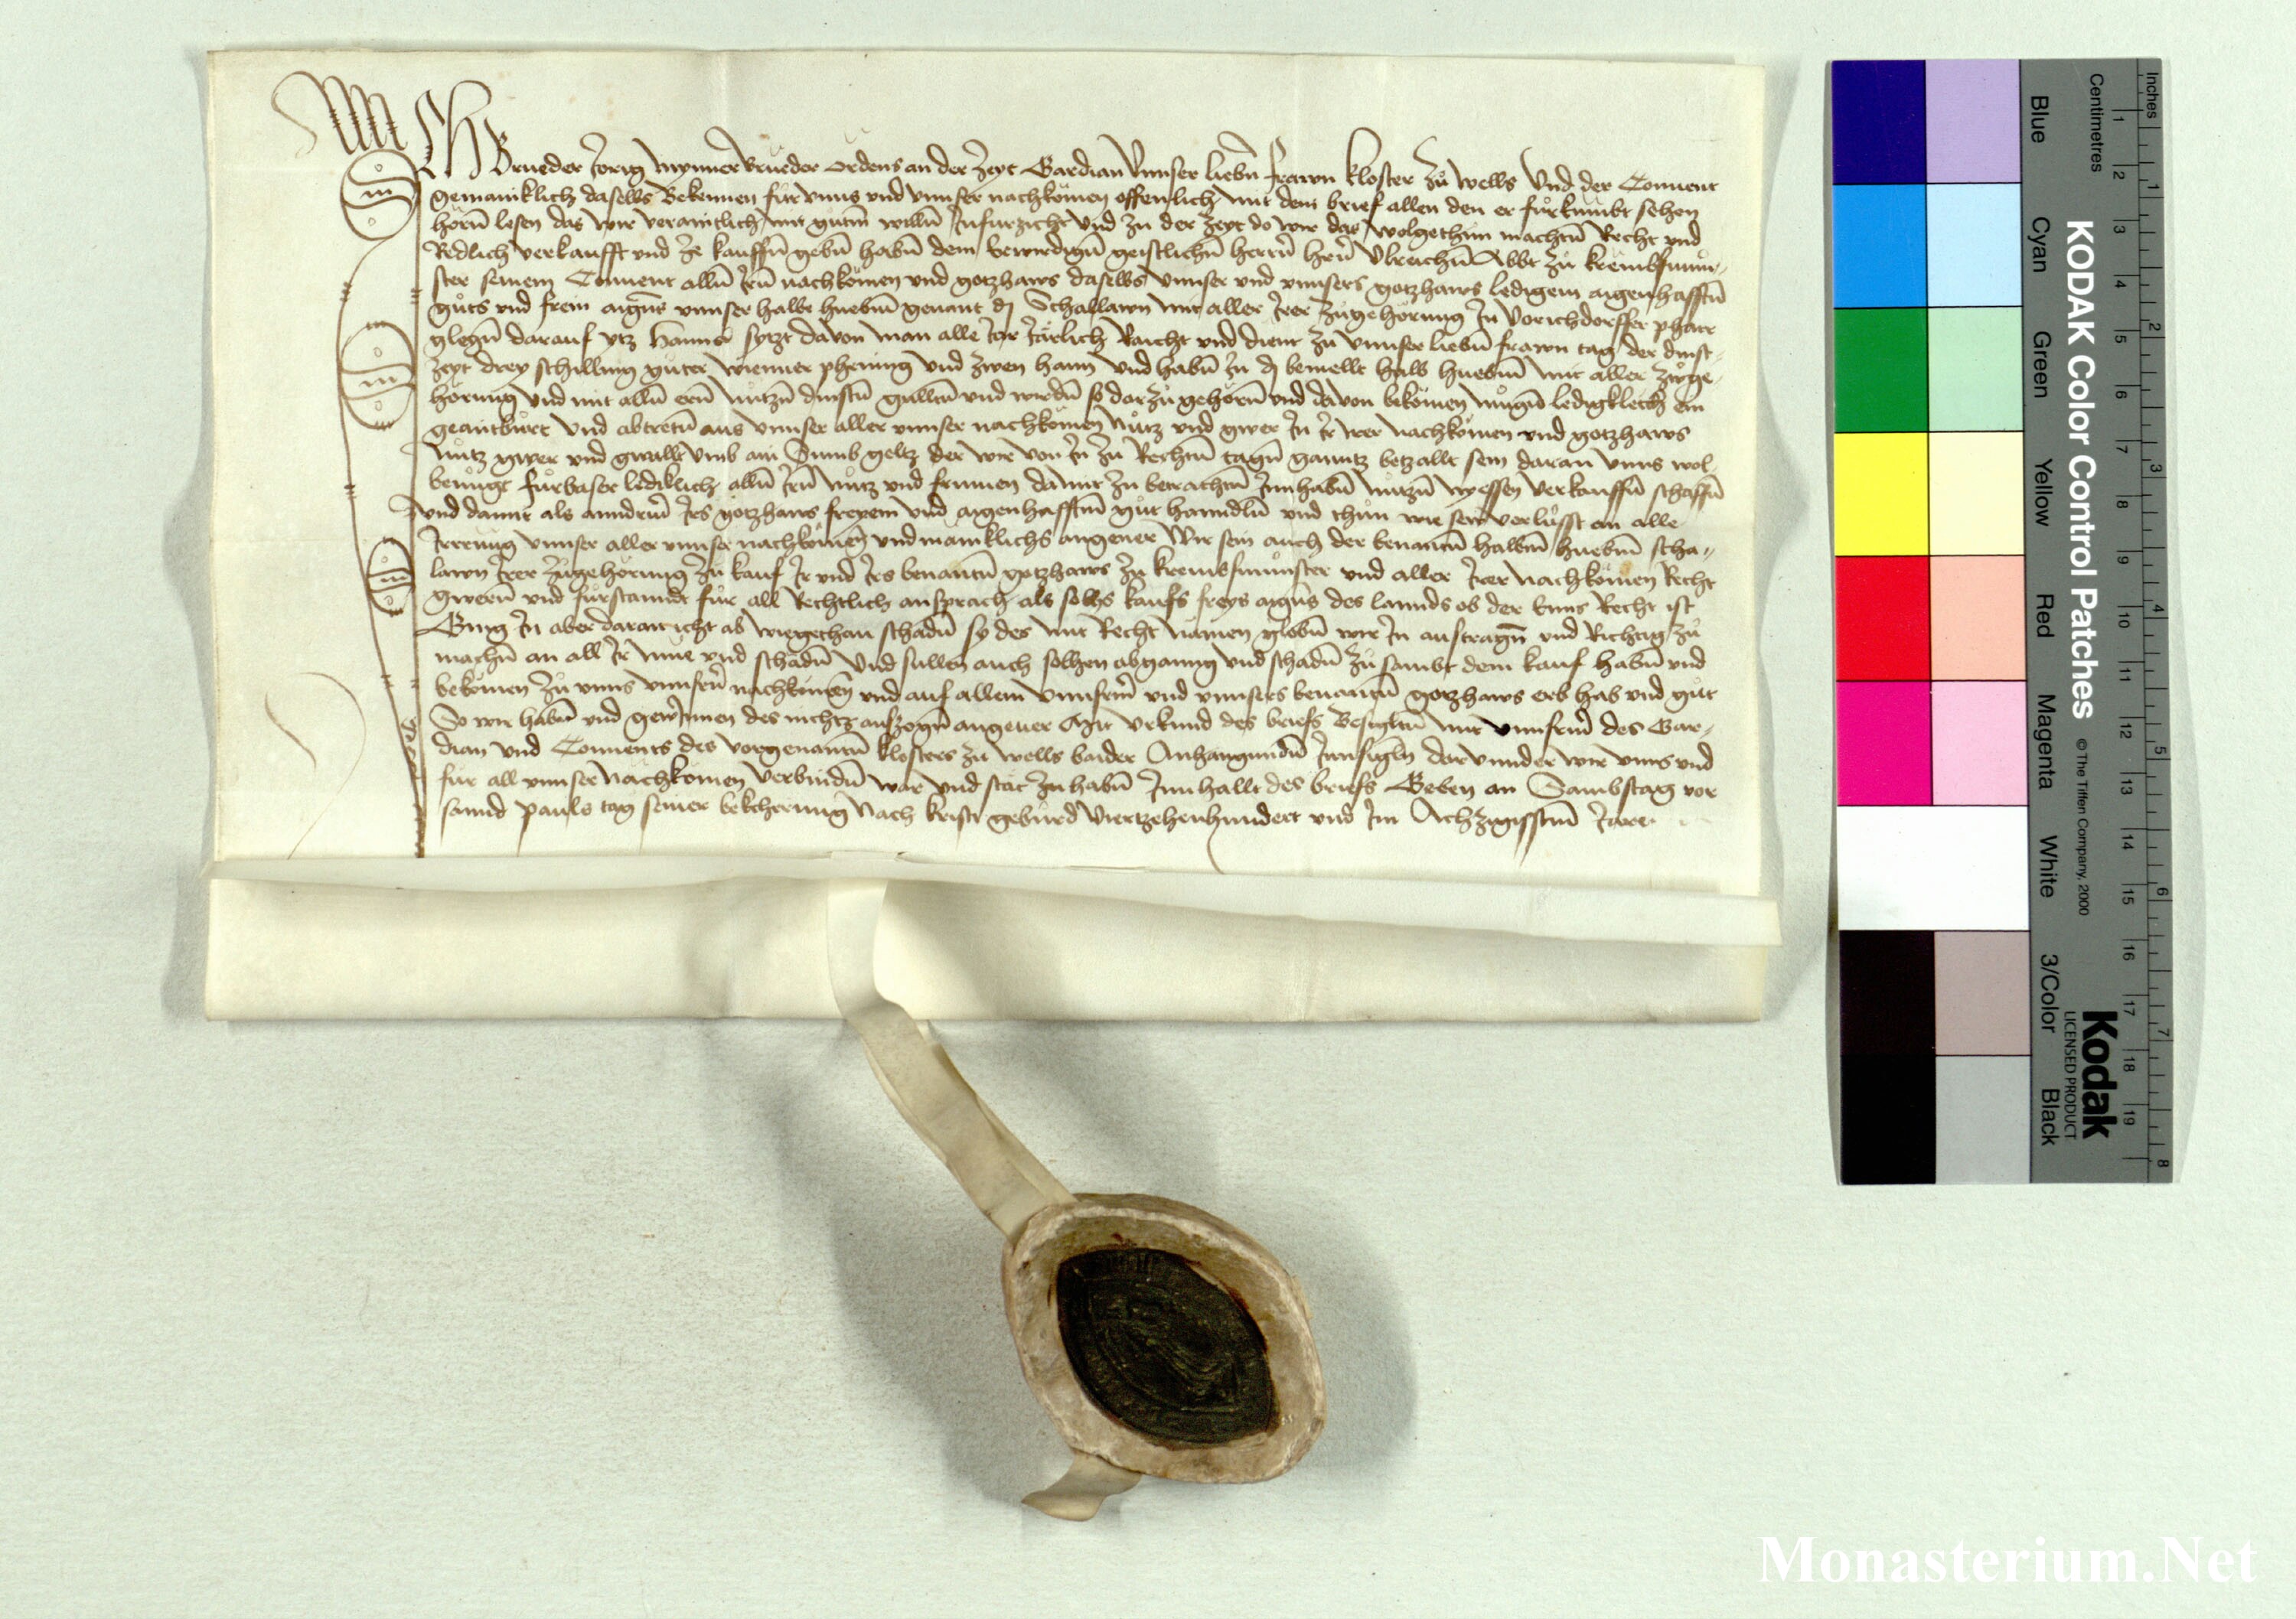 Ich Brueder Jorig Mynnerbrueder ordens an der Zeyt Gardian Vnnser liebn̄ frawn kloster zů wells Vnd der Conuent
gemainklich daselbs Bekennen für vnns vnd vnnser nachkömen offenlich mit dem brief allen den er fürkümbt sehen
hörn̄ lesen das wir veraintlich mit gutm̄ willn̄ Vnd zu der Zeyt do wir das wolgethun machtn̄ Recht vnd
Redlich verkaufft vnd ze kauffn̄ gebn̄ habn̄ dem Erwirdign̄ geistlichn̄ herrn̄ hrn̄ Vlreichn̄ Abbt zu krembsmün-
ster seinem Conuent alln̄ Irn̄ nachkömen vnd gotzhaws daselbs vnnser vnd vnnsers gotzhaws ledigem aigenhafftn̄
guts vnd frein aigns vnnser halbe huebm̄ genant dy Schallawn mit aller Irer zugehörung In Vorichdorffer pharr
glegn̄ darauf ytz Hanns sytzt dauon man alle Iar Järlich Raicht vnd dient zu vnnser liebn̄ frawn tag der dinst-
zeyt drey schilling guter wienner phening vnd zwen hann vnd habn̄ In dy bemellt halb huebm̄ mit aller zuge-
hörung vnd mit alln̄ ern̄ nutzn̄ dinstn̄ gulltn̄ vnd wirdn̄ so darzu gehörn̄ vnd dauon bekömen mugn̄ ledigklich ein
geantburt vnd abtretn̄ aus vnnser aller vnnser nachkömen nutz vnd gwer In Ir Irer nachkömen vnd gotzhaws
nutz gwer vnd gwallt vmb ain Summ geltz der wir von In zu Rechtn̄ tagn̄ ganntz betzallt sein daran vnns wol
benügt fürbaser lediklich alln̄ Irn̄ nutz vnd frumen damit zu betrachtn̄ Innhabn̄ nutzn̄ nyessen verkauffn̄ schaffn̄
vnd damit als anndrm̄ Irs gotzhaws freyem vnd aigenhafftm̄ gut hanndln̄ vnd thun wie sew verlusst an alle
Irrrung vnnser aller vnnser nachkömen vnd mainklichs angeuer Wir sein auch der benantn̄ halbm̄ huebm̄ scha-
lawn Irer zugehörung zu kauf Ir vnd Irs benantn̄ gotzhaws zu krembsmünster vnd aller Irer nachkömen Recht
gwern̄ vnd fürstanndt für all Rechtlich ansprach als solhs kaufs freys aigns des lannds ob der Enns Recht ist
Gieng In aber daran icht ab wiegethan schadn̄ sy des mit Recht nämen globn̄ wir In austragn̄ vnd Richtig zu
machn̄ an all Ir müe vnd schadn̄ Vnd sullen auch solhen abganng vnd schadn̄ zusambt dem kauf habn̄ vnd
bekömen zu vnns vnnsern̄ nachkömen vnd auf allem vnnserm̄ vnd vnnsers benantn̄ gotzhaws erb hab vnd gut
So wir habn̄ vnd gewinnen des nichtz aufzogn̄ angeuer Mit vrkund des briefs Besigltn̄ mit vnnserm̄ des Gar-
dian vnd Conuents des vorgenantn̄ klosters zu wells baider Anhangundn̄ Innsigln̄ darvnnder wir vnns vnd
für all vnnser nachkömen verbindn̄ war vnd stät zu habn̄ Innhallt des briefs Geben an Sambstag vor
sannd pauls tag seiner bekerung Nach kristi gebürd Viertzehenhundert vnd Im Achzigisstm̄ Jare
Inches
Centimetres
1 2 3 4 5 6 7 8 9 10 11 12 13 14 15 16 17 18 19
1 2 3 4 5 6 7 8
KODAK Color Control Patches © The Tiffen Company, 2000
Kodak
LICENSED PRODUCT
Blue Cyan Green Yellow Red Magenta White 3/Color Black
Monasterium.Net